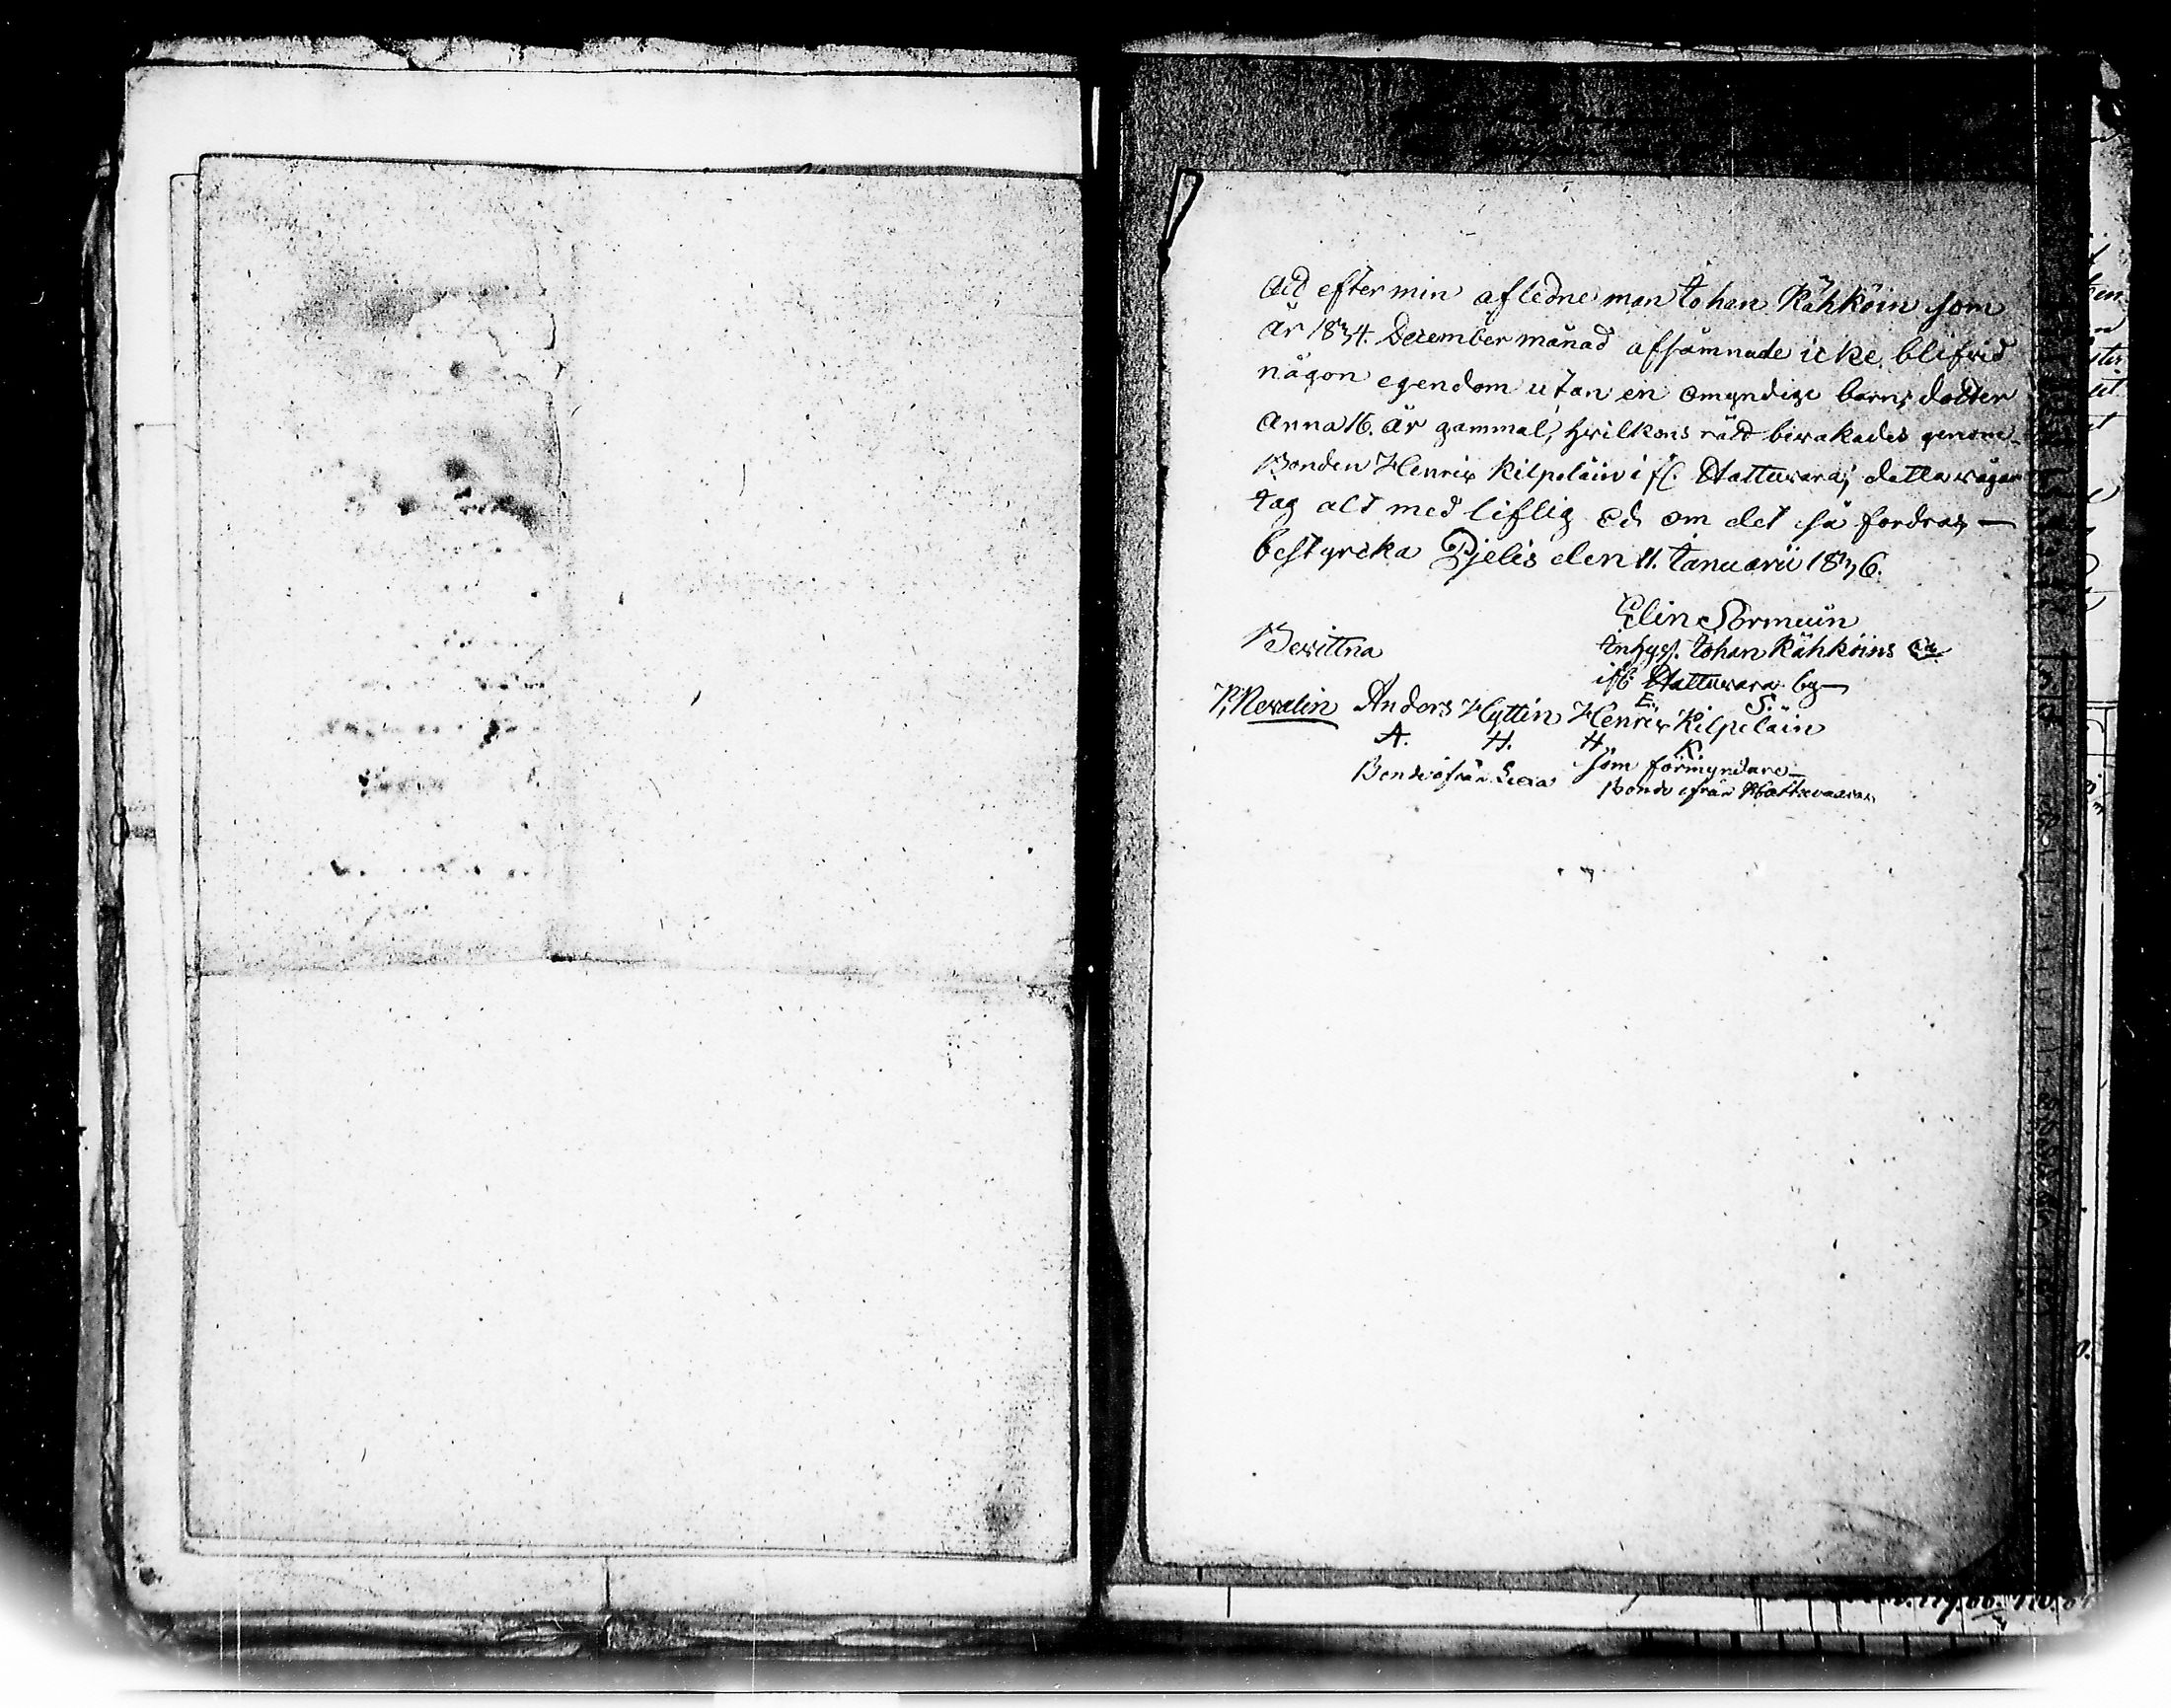 Att efter min afledne man Johan Kähköin som
år 1834. December månad afsomnade icke blifvid
någon egendom utan en omyndige barn, dotter
Anna 16. år gammal, hvilkens rätt bevakades genom
Bonden Henrix Kilpeläin i fl. Hattuvara; detta vågar
tag alt med liflig ed, om det så fordras,—
bestyrcka Pjelis den 11. Januarii 1836.
Elin Sormuin
Inhys. Johan Kähköins Enk.
ifl. Hattuvara by—
E. S.
Bevittna
P. Nevalin Anders Hyttin Henrix Kilpeläin
A. H. H. K
Bonde ifrån Lexa som förmyndare—
Bonde ifrån Hattuvaara